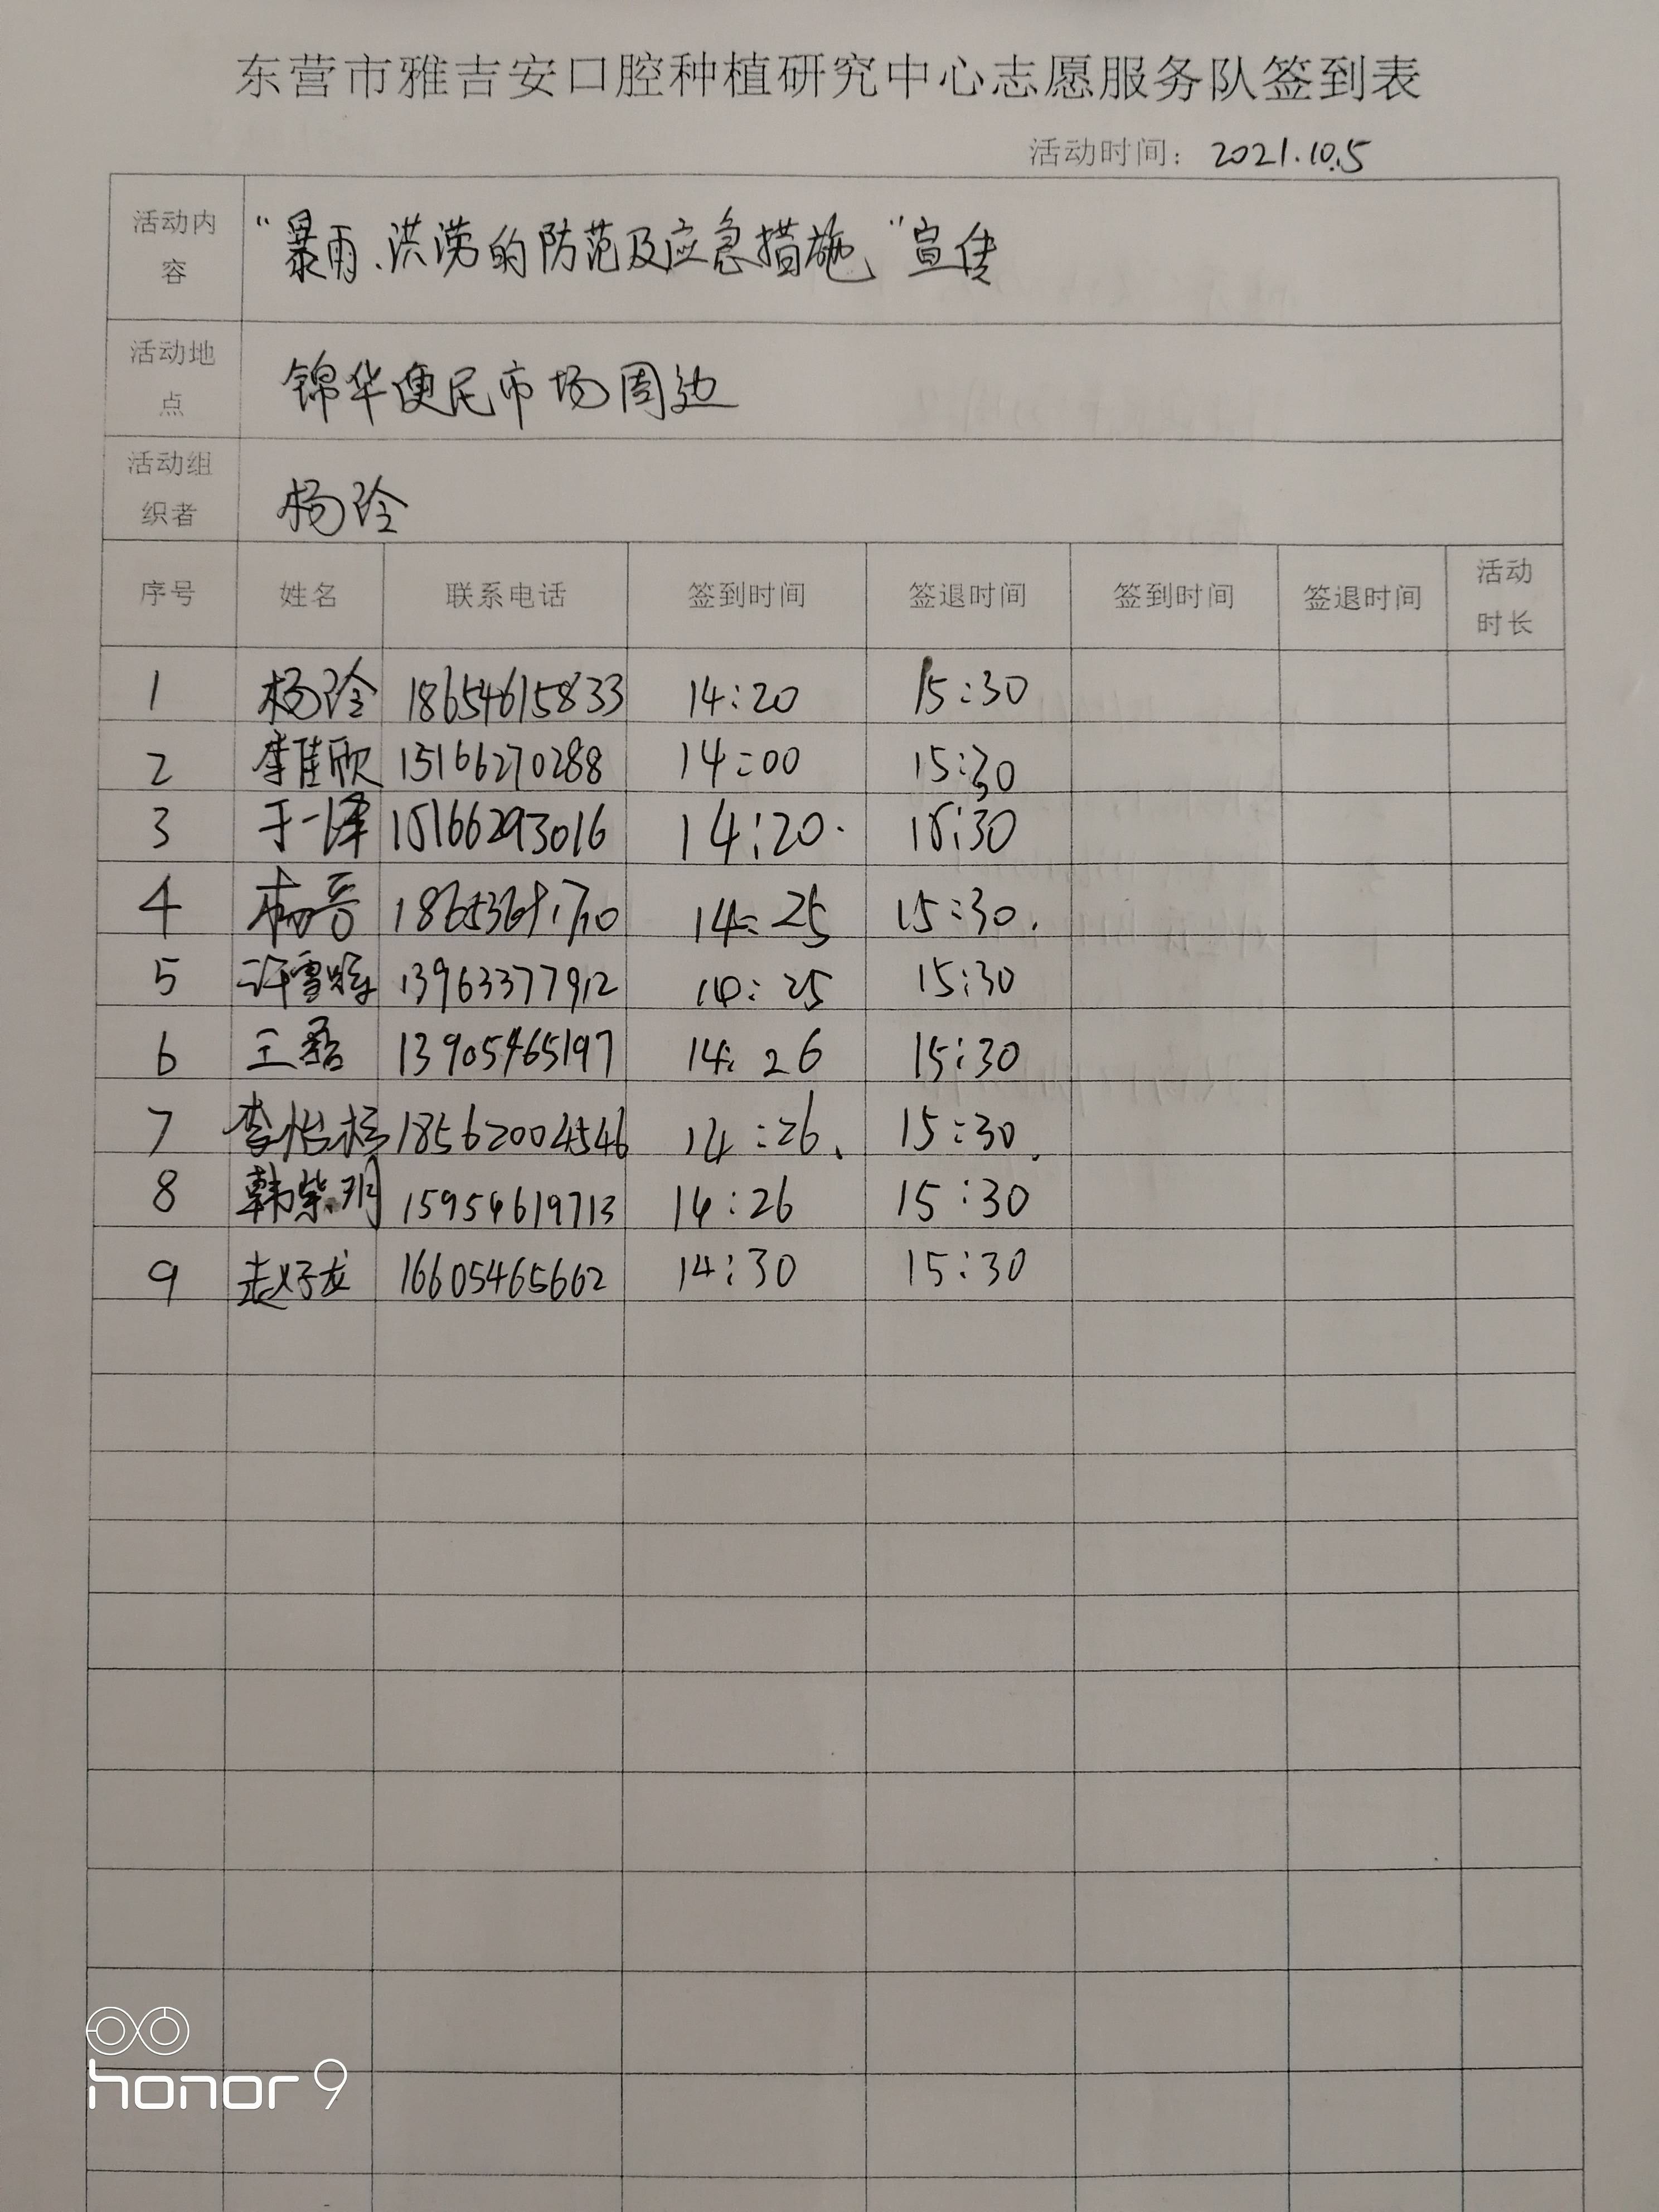 东营市雅吉安口腔种植研究中心志愿服务队签到表
活动时间：2021.10.5
活动内容 “暴雨、洪涝的防范及应急措施”宣传
活动地点 锦华便民市场周边
活动组织者 杨玲
序号 姓名 联系电话 签到时间 签退时间 签到时间 签退时间 活动时长
1 杨玲 18654615833 14:20 15:30
2 李佳欣 15166270288 14:00 15:30
3 于一泽 15166293016 14:20. 15:30
4 14:25 15:30.
5 许雪 13963377912 14:25 15:30
6 王磊 13905465197 14:26 15:30
7 李怡 18562004546 14:26. 15:30.
8 韩紫玥 15954619713 14:26 15:30
9 赵子龙 16605465662 14:30 15:30
honor 9